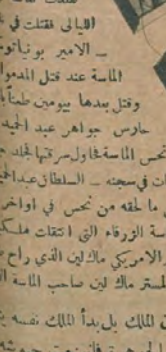 الليالى فقتلت في
ـ الامير بونياتو
الماسة عند قتل المدموا
وقتل بعدها بيومين طعناً با
حارس جواهر عبد الحميد
نحس الماسة فحاول سرقتها فجلد
ت في سجنه ـ السلطان عبد الحميد
ما لحقه من نحس في اواخر
سة الزرقاء التى انتقلت ملكية
الامريكى ماك لين الذي راح
لمستر ماك لين صاحب الماسة ال
الملك بل بدأ الملك نفسه